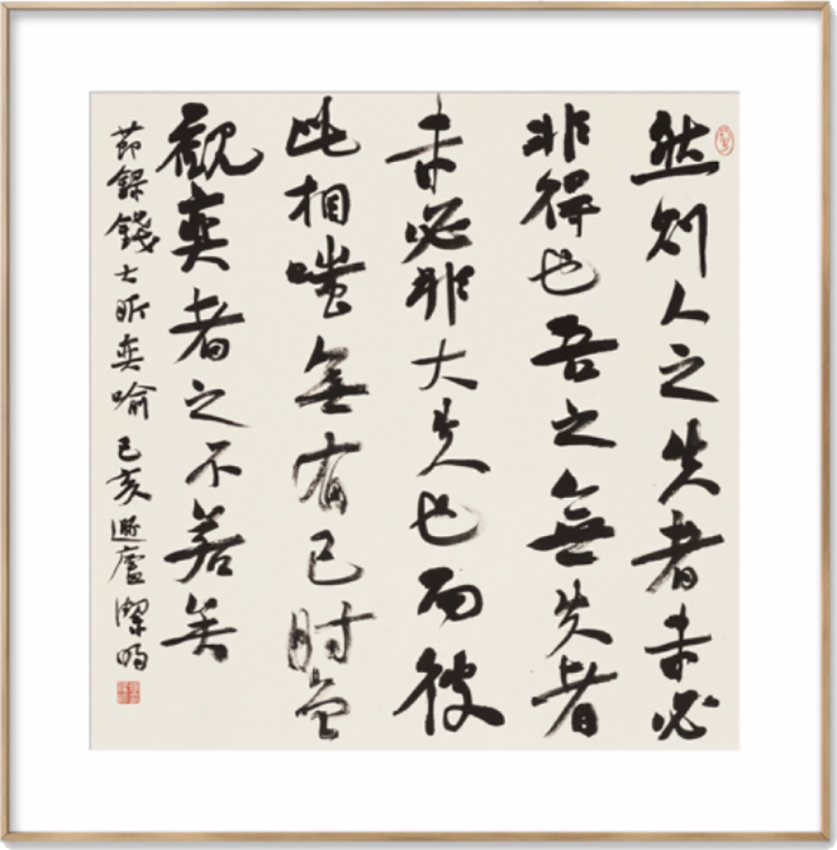 然则人之失者未必
非得也吾之無失者
未必非大失也而彼
此相嗤無有已时曾
觀奕者之不若矣
節録錢大昕奕喻己亥遯廬潔明